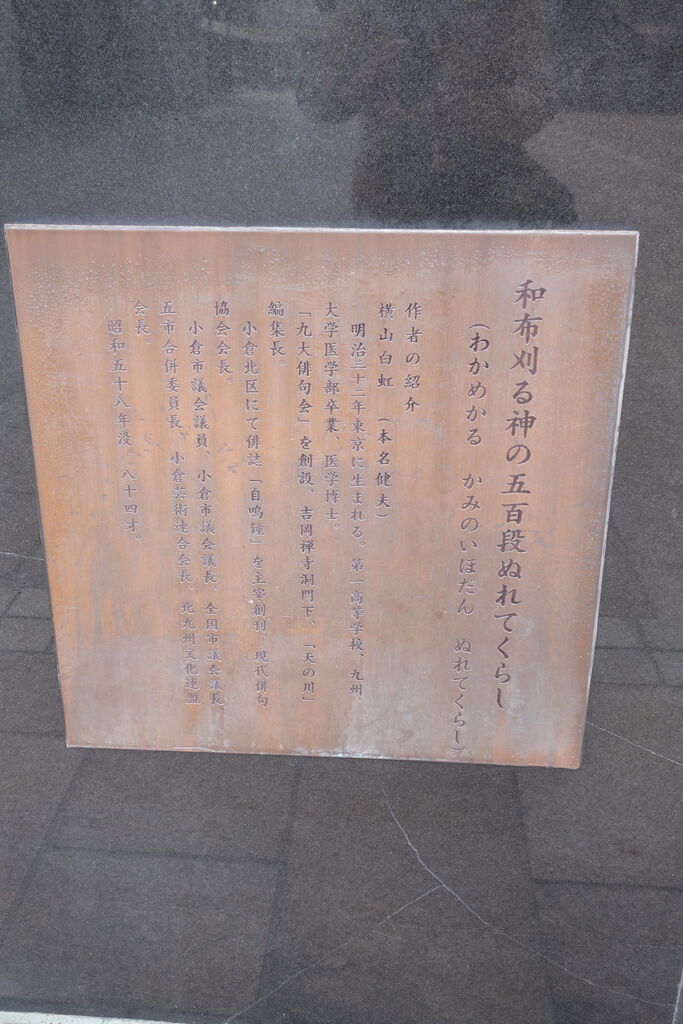 和布刈る神の五百段ぬれてくらし
(わかめかる かみのいほだん ぬれてくらし)
作者の紹介
横山白虹 (本名健夫)
明治三十二年東京に生まれる。第一高等学校、九州
大学医学部卒業、医学博士。
「九大俳句会」を創設、吉岡禅寺洞門下、「天の川」
編集長。
小倉北区にて俳誌「自鳴鐘」を主宰創刊、現代俳句
協会会長。
小倉市議会議員、小倉市議会議長、全国市議会議長、
五市合併委員長、小倉芸術連合会長、北九州文化連盟
会長。
昭和五十八年没。八十四才。